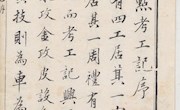 點考工記序
有四工居其一
居其一周禮有
而考工記興
木攻金攻皮設
技則為車為